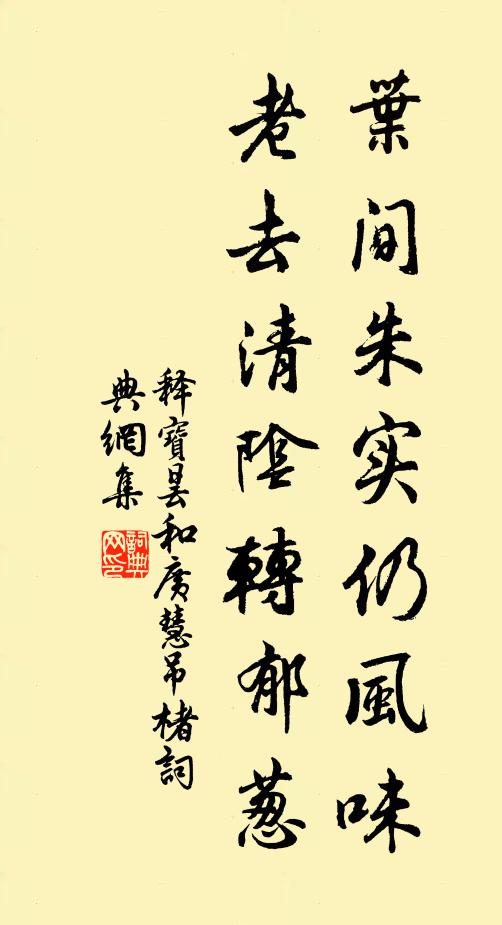 葉间朱实仍風味
老去清陰轉郁葱
释寶曇和廣慧吊楮詞
典網集
詞典網印